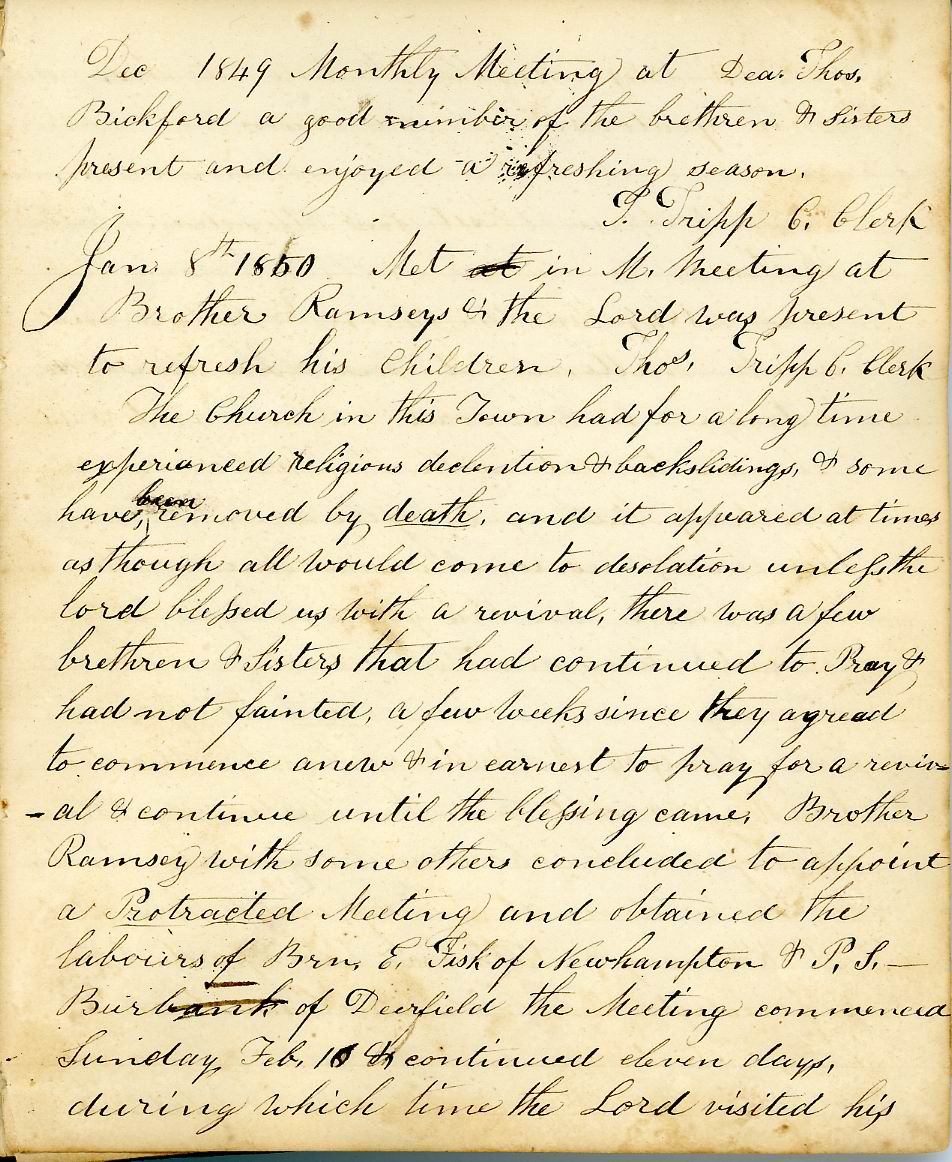 Dec 1849 Monthly Meeting at Dea. Thos.
Bickford a good number of the brethren & Sisters
present and enjoyed a refreshing season.
T. Tripp C. Clerk
Jan 8th 1850 Met at in M. Meeting at
Brother Ramseys & the Lord was present
to refresh his Children. Thos. Tripp C. Clerk
The Church in this Town had for a long time
experianced religious declention & backslidings, & some
have been removed by death, and it appeared at times
as though all would come to desolation unless the
lord blessed us with a revival, there was a few
brethren & Sisters that had continued to Pray &
had not fainted, a few weeks since they agread
to commence anew & in earnest to pray for a reviv-
-al & continue until the blessing came. Brother
Ramsey with some others concluded to appoint
a Protracted Meeting and obtained the
labours of Brn. E. Fisk of Newhampton & P. S. —
Burbank of Deerfield the Meeting commenced
Sunday Feb. 10 & continued eleven days,
during which time the Lord visited his